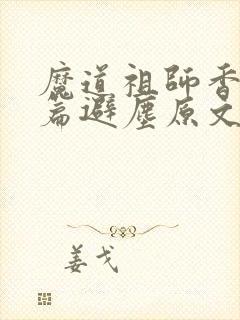 魔道祖師香
篇避塵原文
姜戈